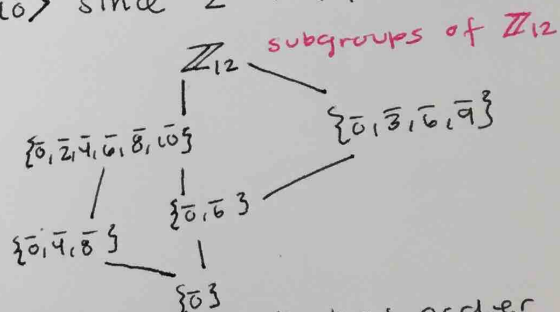 10> since 2
subgroups of ℤ₁₂
ℤ₁₂
{0̅, 2̅, 4̅, 6̅, 8̅, 1̅0̅}
{0̅, 3̅, 6̅, 9̅}
{0̅, 6̅}
{0̅, 4̅, 8̅}
{0̅}
order